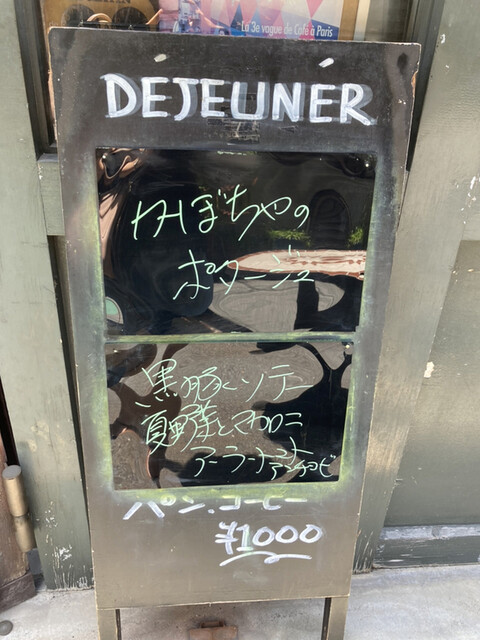 La 3e vague de Café à Paris
DEJEUNER
かぼちゃの
ポタージュ
黒豚ソテー
夏野菜とマカロニ
パン、コーヒー
¥1000